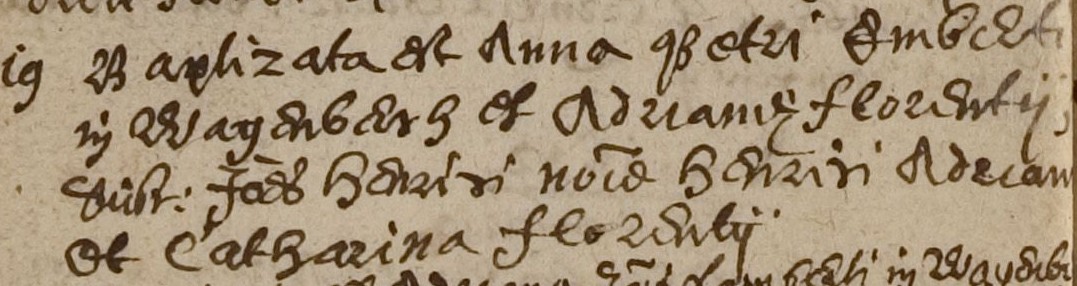 19 Baptizata est Anna Petri Emberti
in Wagenberh et Adrianę Florentij,
Susc: Joēs Henrici noīe Henrici Adriani
et Catharina Florentij
in Wagenb